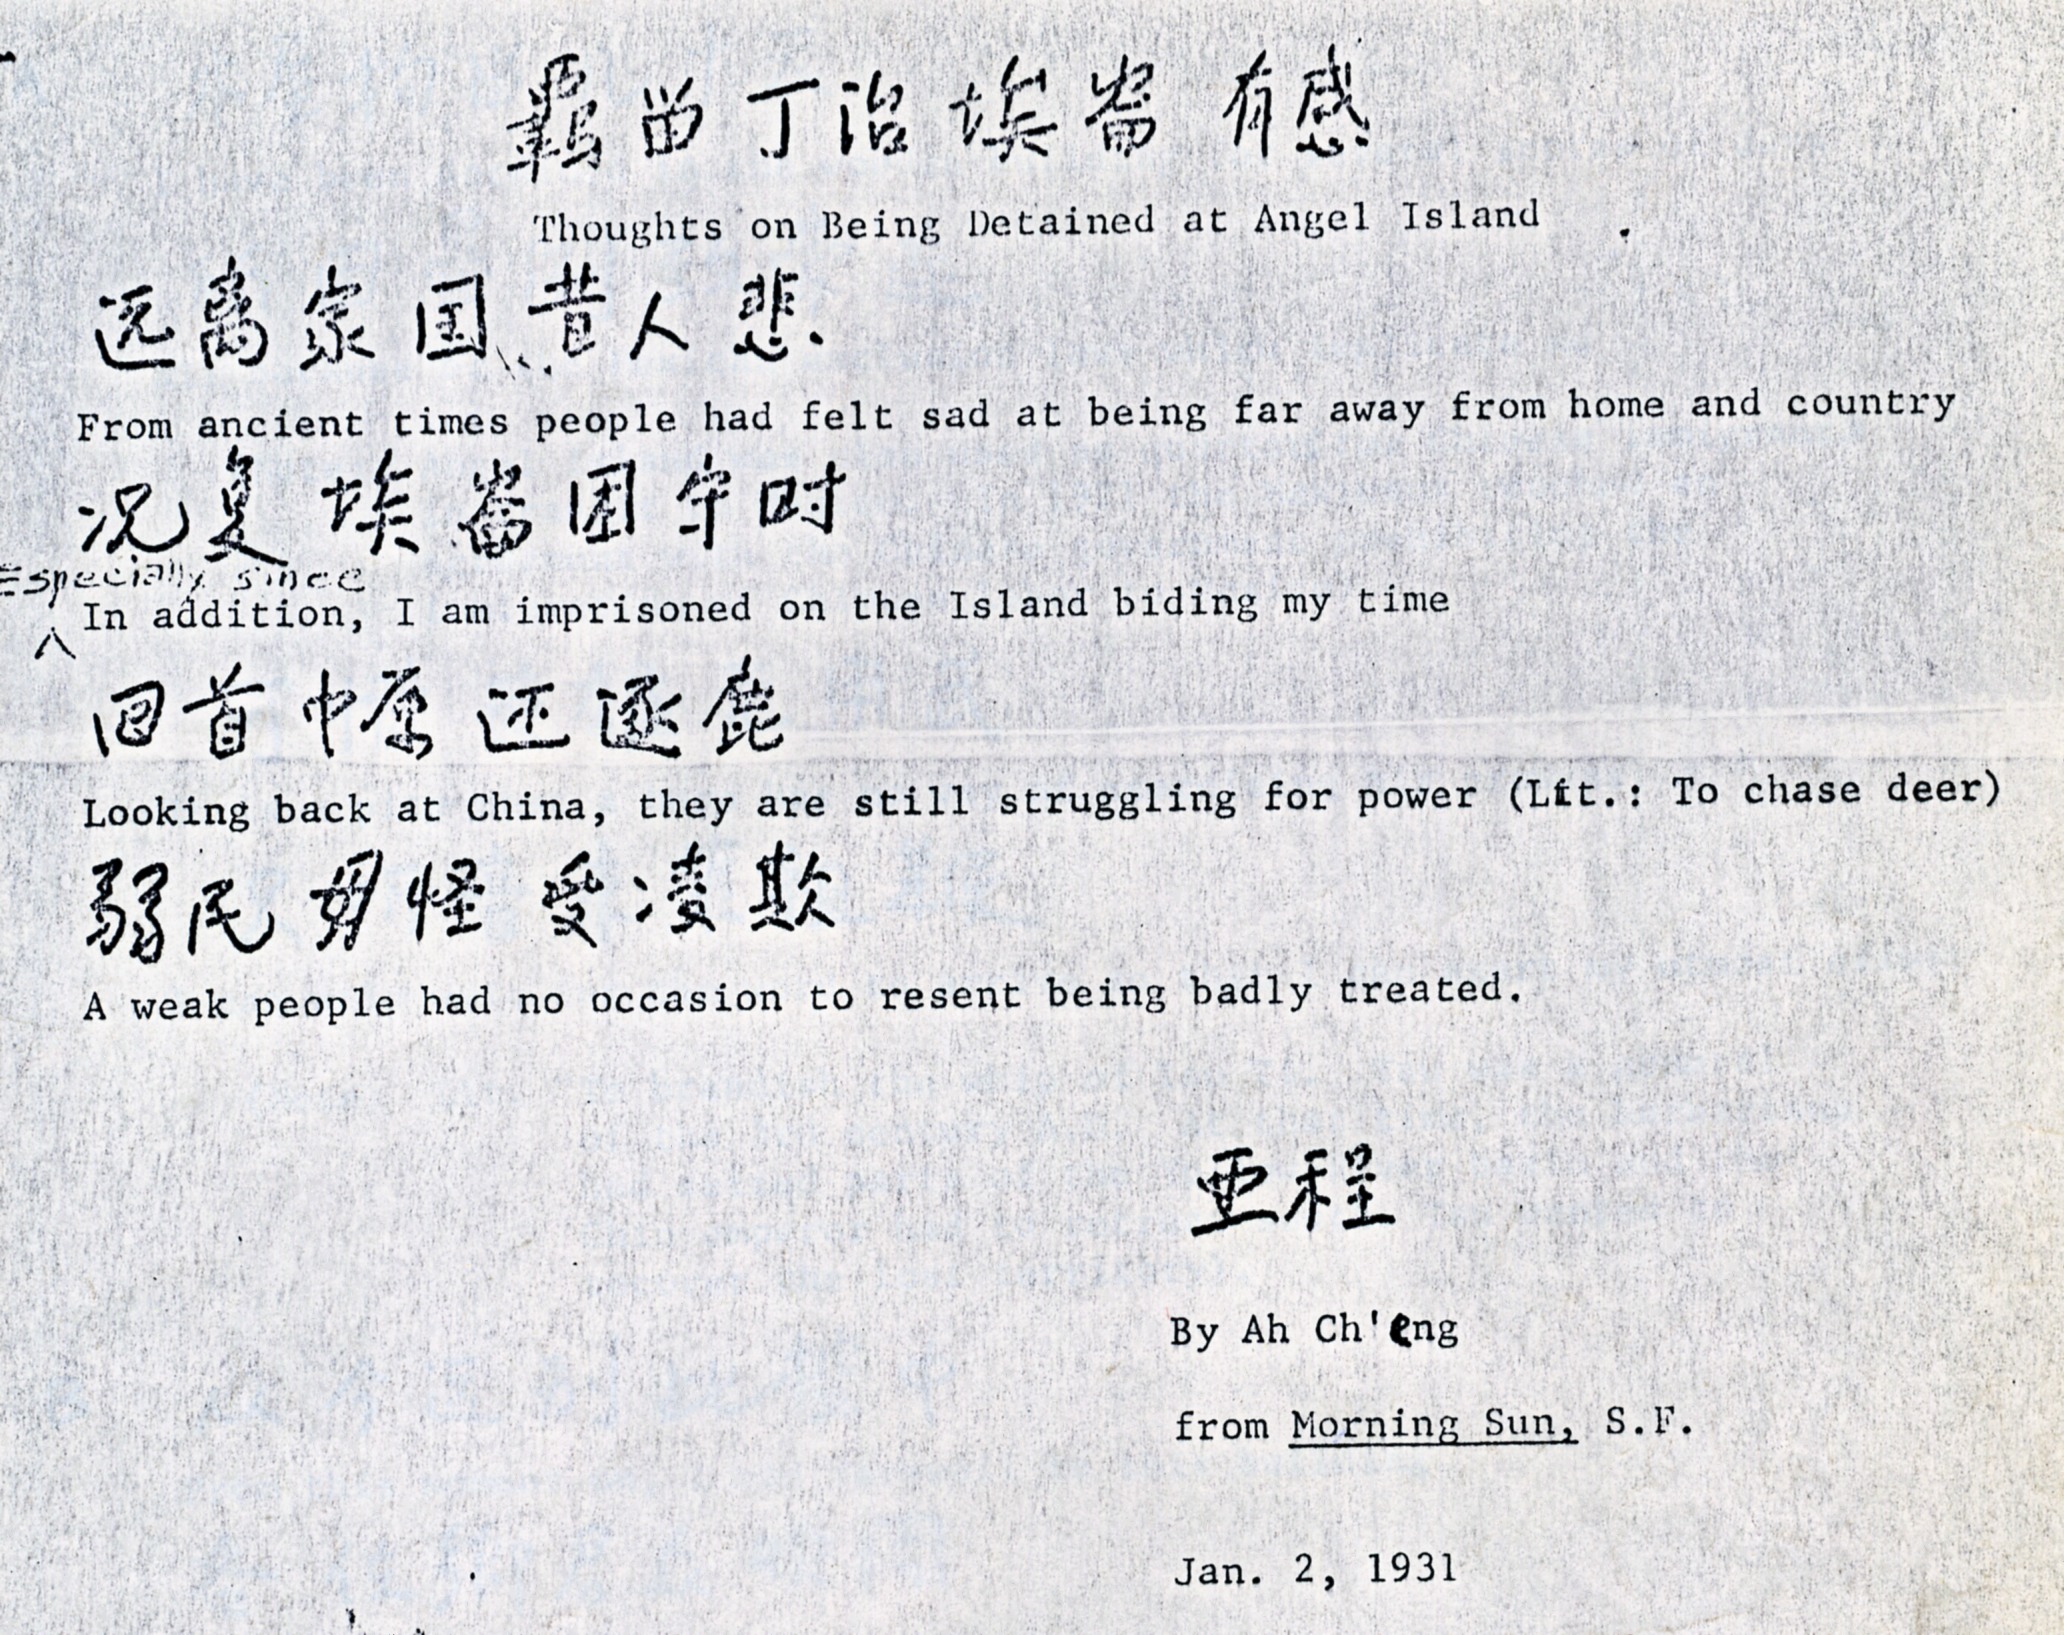 羁留丁治埃崙有感
Thoughts on Being Detained at Angel Island
远离家国昔人悲.
From ancient times people had felt sad at being far away from home and country
况复埃崙困守时
Especially since
In addition, I am imprisoned on the Island biding my time
回首中原还逐鹿
Looking back at China, they are still struggling for power (Lit.: To chase deer)
弱民毋怪受凌欺
A weak people had no occasion to resent being badly treated.
亜程
By Ah Ch'eng
from Morning Sun, S.F.
Jan. 2, 1931